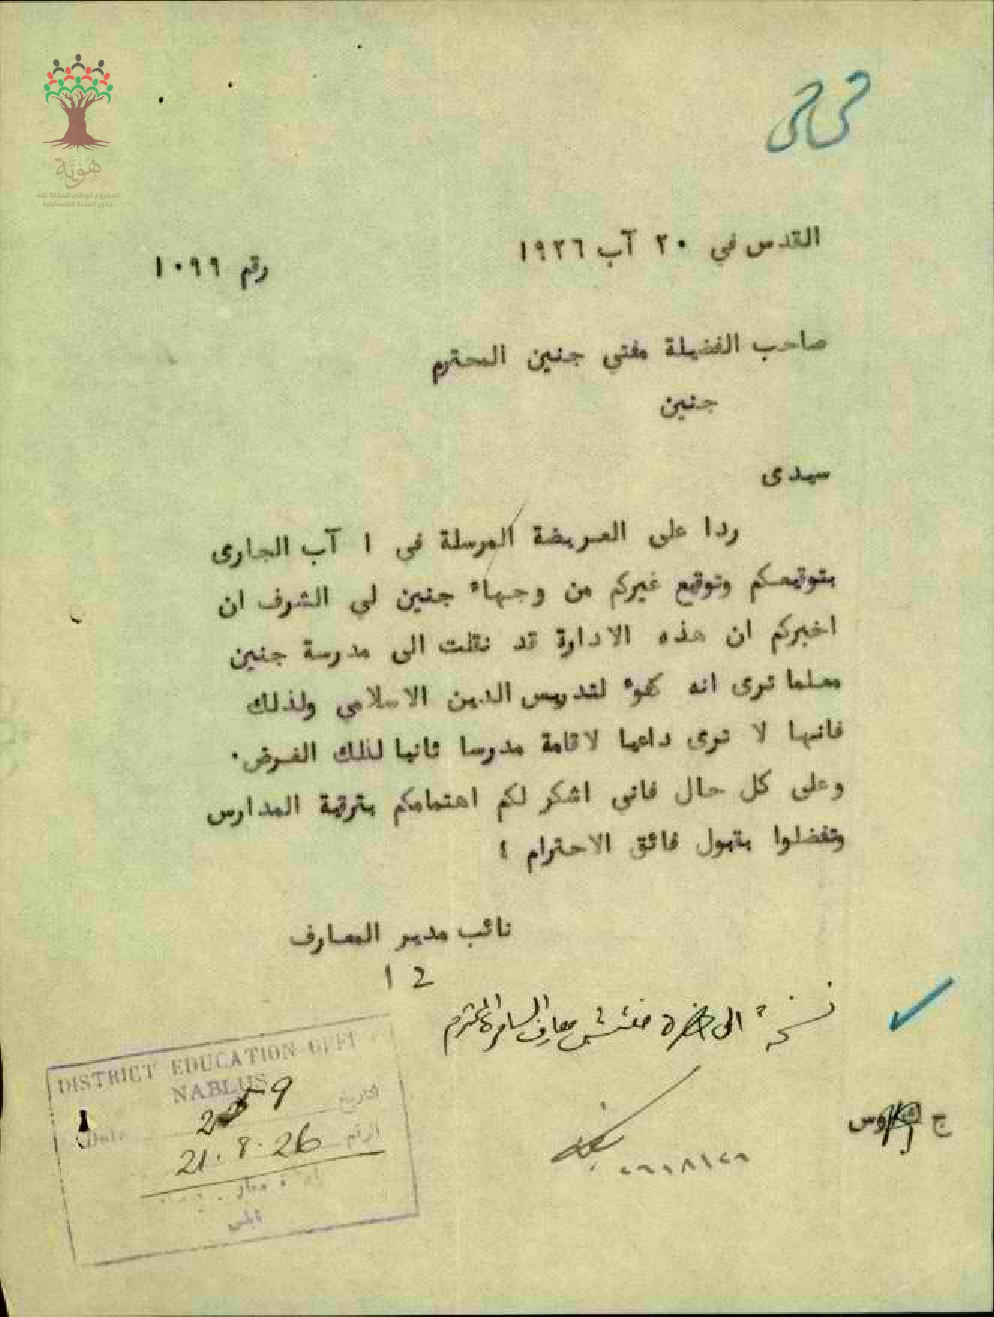 هوية
القدس في ٢٠ آب ١٩٢٦
رقم ١٠٩٩
صاحب الفضيلة مفتي جنين المحترم
جنين
سيدى
ردا على العريضة المرسلة في ١ آب الجارى
بتوقيعكم وتوقيع غيركم من وجهاء جنين لي الشرف ان
اخبركم ان هذه الادارة قد نقلت الى مدرسة جنين
معلما ترى انه كفوء لتدريس الدين الاسلامي ولذلك
فانها لا ترى داعيا لاقامة مدرسا ثانيا لذلك الغرض.
وعلى كل حال فاني اشكر لكم اهتمامكم بترقية المدارس
وتفضلوا بقبول فائق الاحترام
نائب مدير المعارف
نسخة الى حضرة مفتش معارف السامرة المحترم
DISTRICT EDUCATION OFFI
NABLUS
Date
التاريخ
الرقم
21.8.26
نابلس